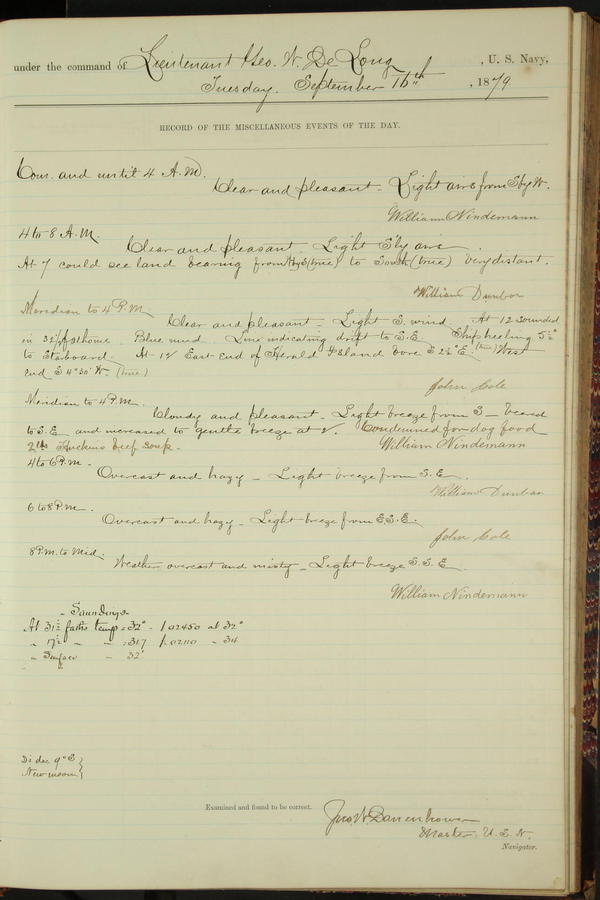 under the command of Lieutenant Geo. W. De Long, U. S. Navy,
Tuesday, September 16th, 1879.
RECORD OF THE MISCELLANEOUS EVENTS OF THE DAY.
Com. and until 4 A.M.
Clear and pleasant - Light airs from S by W.
William Nindemann
4 to 8 A.M.
Clear and pleasant. Light S'ly airs.
At 7 could see land bearing from (true) to South (true) very distant.
William Dunbar
Meridian to 4 P.M.
Clear and pleasant - Light S. wind. At 12 sounded
in 32½ fathoms. Blue mud. Line indicating drift to S.E. Ship heeling 5½°
to Starboard. At 12 East end of Herald Island bore E. (true) West
end S 4° 30' W. (true)
John Cole
Meridian to 4 P.M.
Cloudy and pleasant - Light breeze from S - veered
to S.E. and increased to gentle breeze at 2. Condemned for dog food
2 lbs Huckins beef soup. William Nindemann
4 to 6 P.M.
Overcast and hazy - Light breeze from S.E.
William Dunbar
6 to 8 P.M.
Overcast and hazy - Light breeze from E.S.E.
John Cole
8 P.M. to Mid.
Weather overcast and misty - Light breeze S.S.E.
William Nindemann
- Soundings -
At 31½ faths temp = 32° - 1.02450 at 32°
" 17½ - - = 31.7 1.02110 - 34
" Surface - 32°
dec 9° S
New moon
Examined and found to be correct.
Jno W Danenhower
Master, U.S.N.
Navigator.